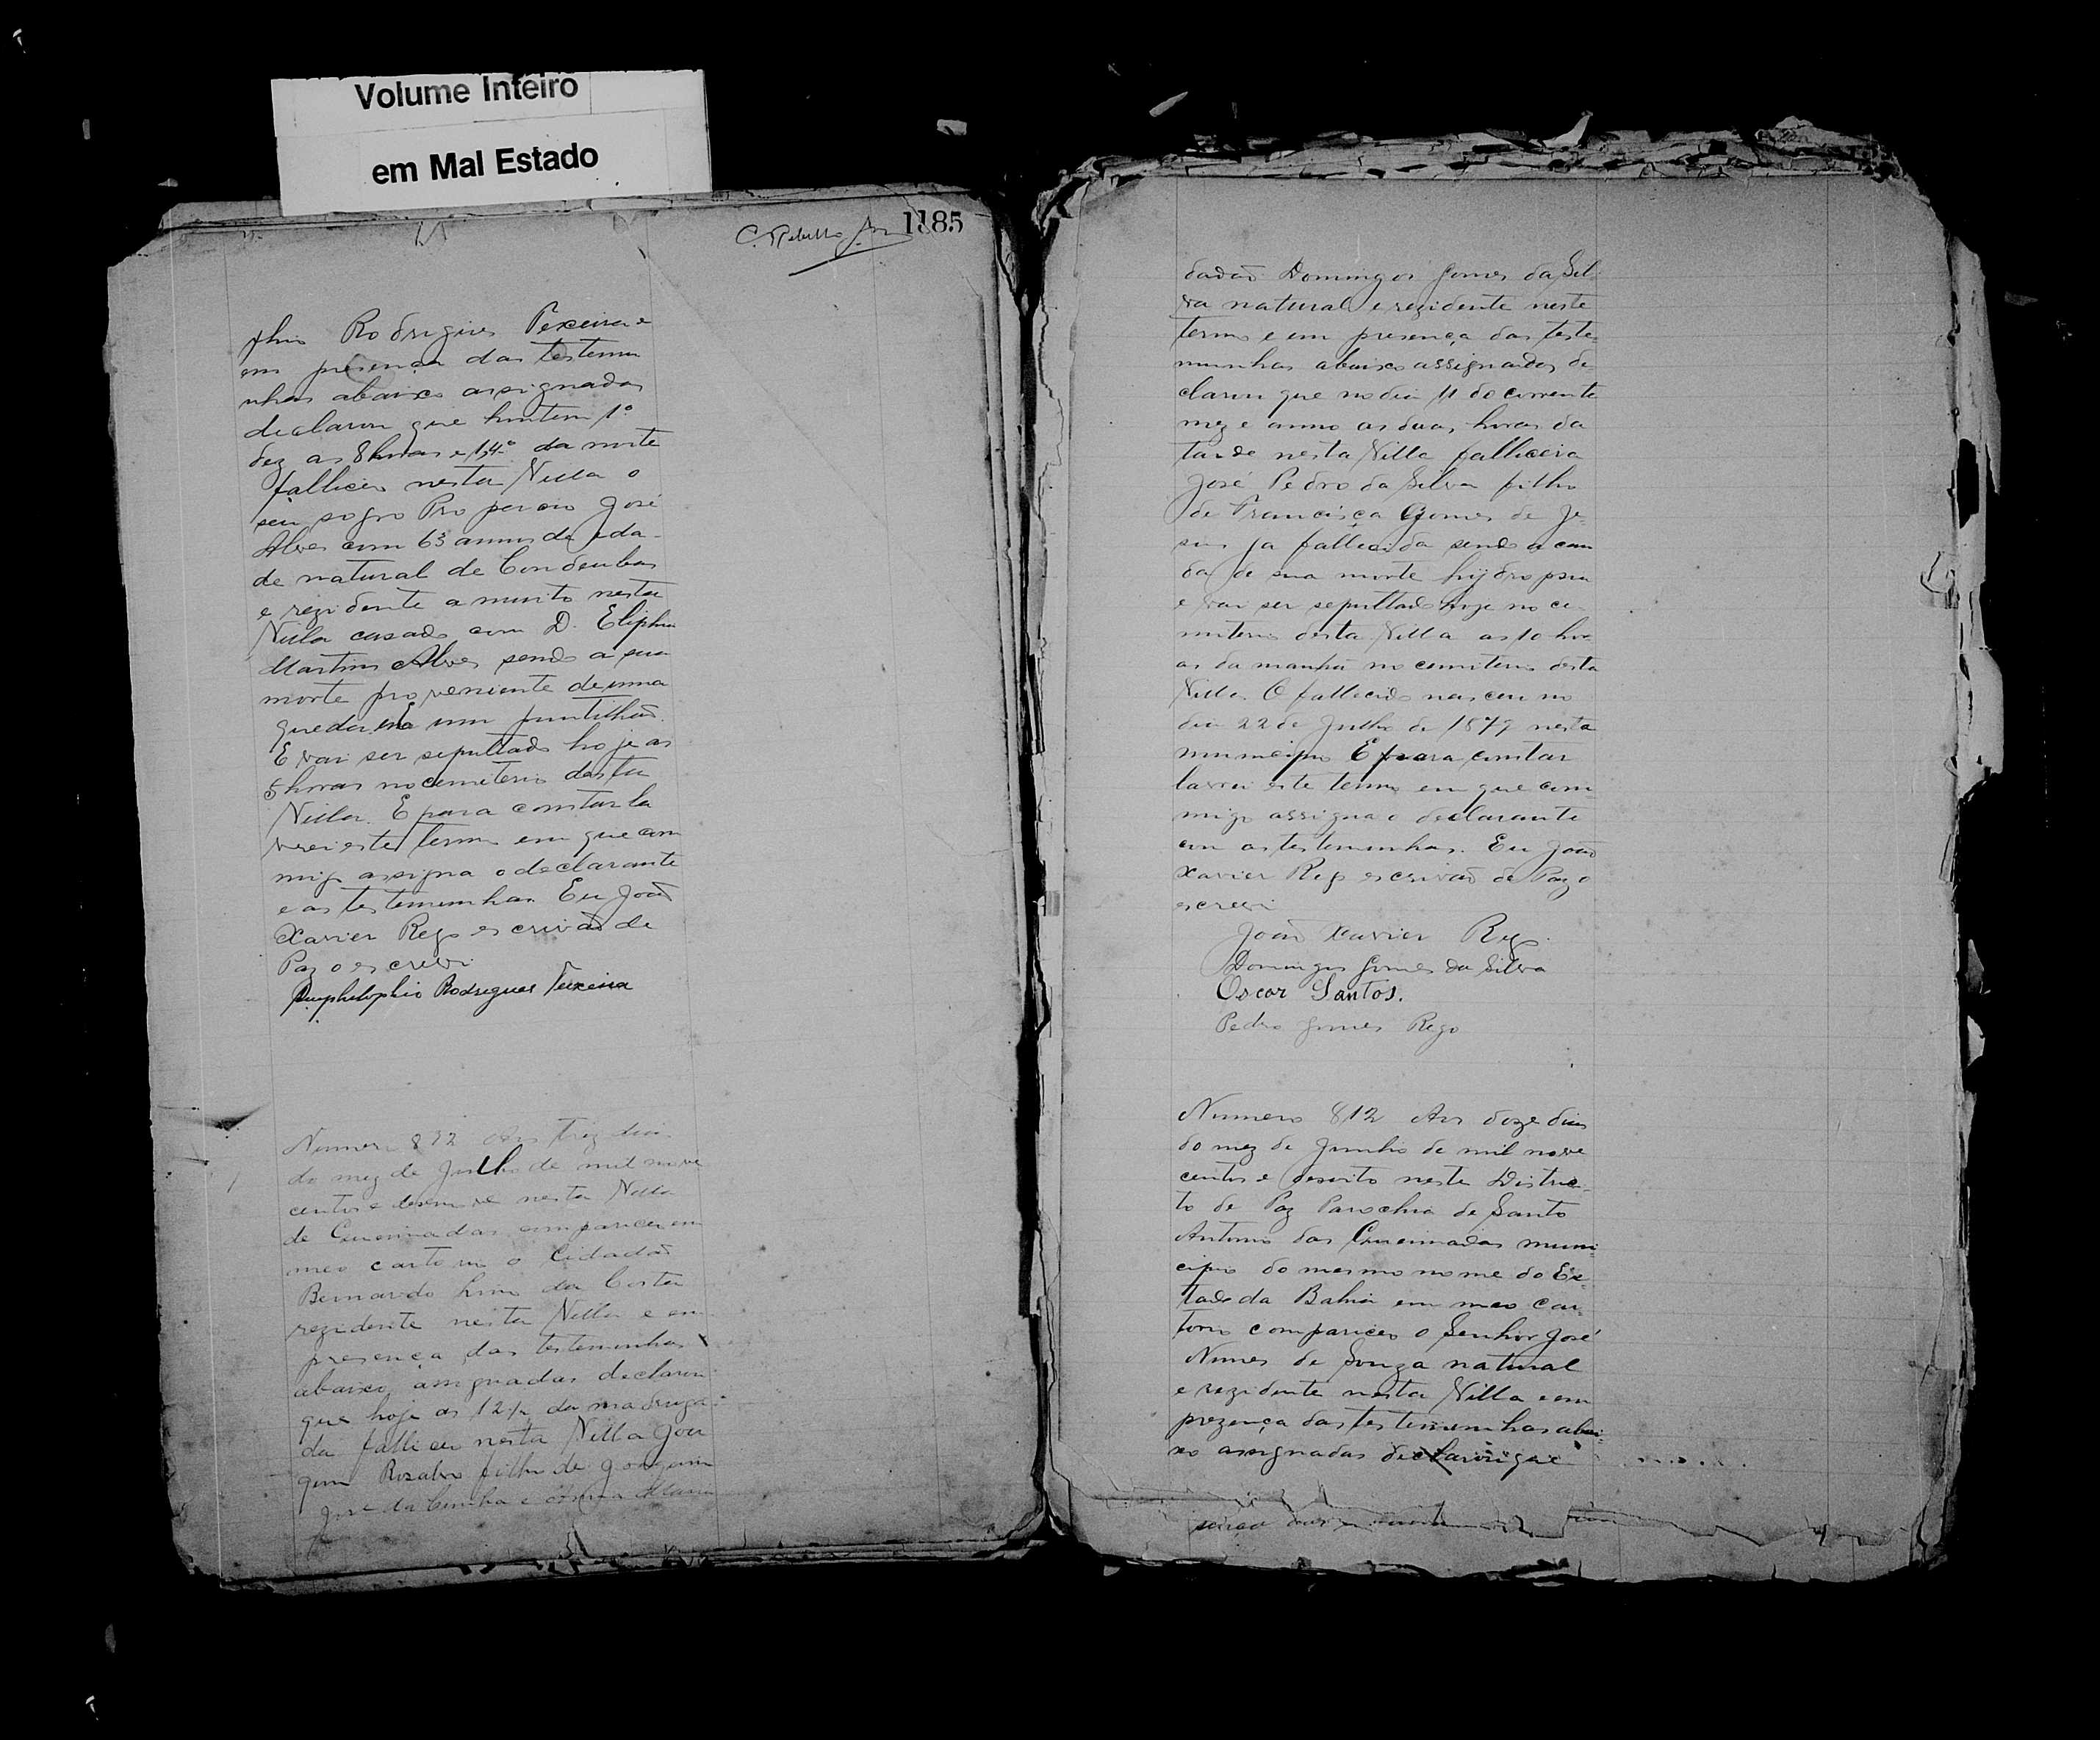 Volume Inteiro
em Mal Estado
1185
phio Rodrigues Texeira e
em presença das testemu
nhas abaixo assignadas
declarou que hontem 1º
dez as 8 horas e 1/4º da noite
falleceu nesta Villa o
seu sogro José
Alves com 63 annos de ida-
de natural de Condeubas
e rezidente a muito nesta
Villa casado com D. Eliphia
Martins Alves sendo a sua
morte proveniente de uma
queda um pontilhão.
E vai ser sepultado hoje as
5 horas no cemiterio desta
Villa. E para constar la
vrei este termo em que com
migo assigna o declarante
e as testemunhas. Eu João
Xavier Rego escrivão de
Paz o escrevi
Rodrigues Teixeira
Numero 8 2 Aos trez dias
do mez de Julho de mil nove
centos e desenove nesta Villa
de Queimadas compareceu em
meo cartorio o Cidadão
Bernardo Lino da Costa
rezidente nesta Villa e em
presença das testemunhas
abaixo assignadas declarou
que hoje as 12 1/2 da madruga-
da falleceu nesta Villa Joa
quim filho de Joaquim
José da Cunha e Anna Maria
dadão Domingos Gomes da Sil
va natural e rezidente neste
termo e em presença das teste-
munhas abaixo assignadas de-
clarou que no dia 11 do corrente
mez e anno as duas horas da
tarde nesta Villa fallecera
José Pedro da Silva filho
de Francisca Gomes de Je-
sus ja fallecida sendo a cau
da de sua morte hydropsia
e vai ser sepultado hoje no ce-
miterio desta Villa as 10 ho-
as da manhã no cemiterio desta
Villa. O fallecido nasceu no
dia 22 de Julho de 1879 neste
municipio E para constar
lavrei este termo em que com-
migo assigna o declarante
com as testemunhas. Eu João
Xavier Rego escrivão de Paz o
escrevi
João Xavier Rego.
Domingos Gomes da Silva
Oscar Santos.
Pedro Gomes Rego
Numero 812 Aos doze dias
do mez de Junho de mil nove
centos e desoito neste Distric-
to de Paz Parochia de Santo
Antonio das Queimadas muni-
cipio do mesmo nome do Es-
tado da Bahia em meo car-
torio compareceo o Senhor José
Nunes de Souza natural
e rezidente nesta Villa e em
prezença das testemunhas abai-
xo assignadas declarou que